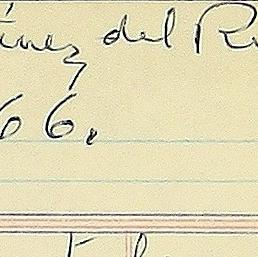 ínez del R
66.